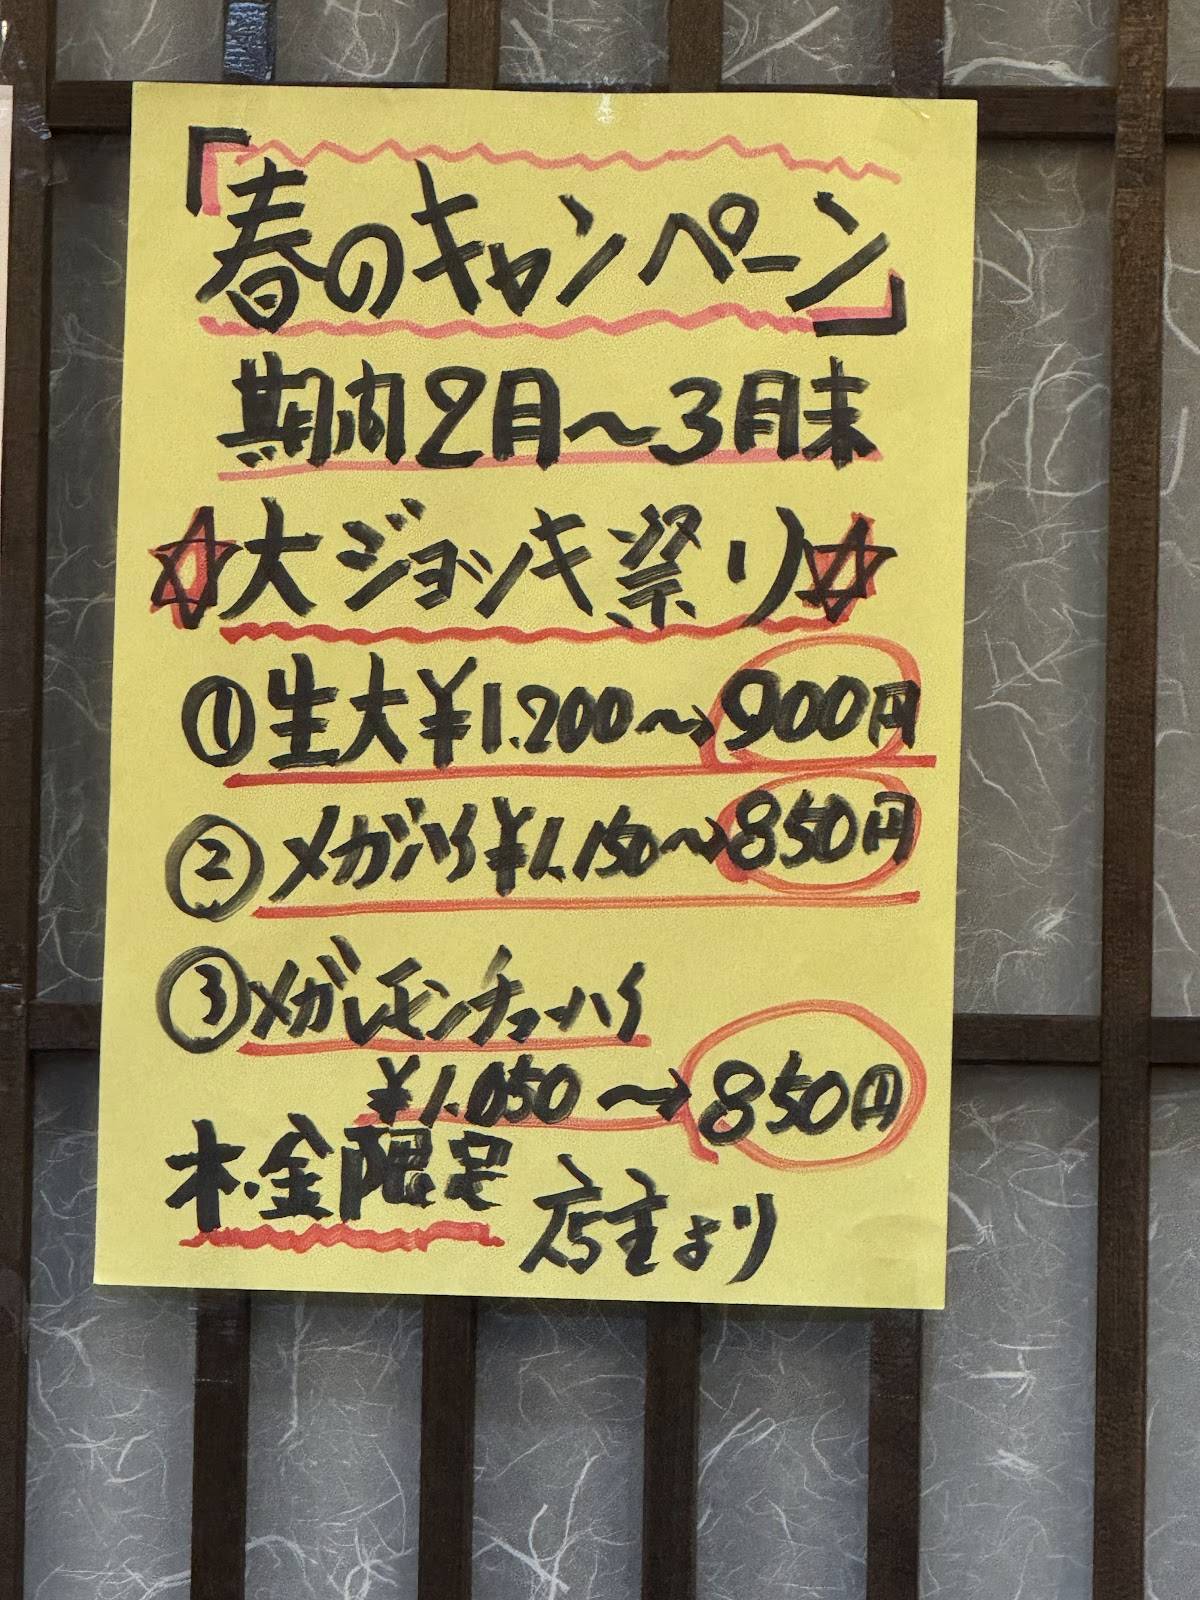 「春のキャンペーン」
期間2月〜3月末
☆大ジョッキ祭り☆
①生大¥1.200〜→900円
②メガハイ¥1.150〜→850円
③メガレモンチューハイ
¥1.050〜→850円
木.金限定
店主より